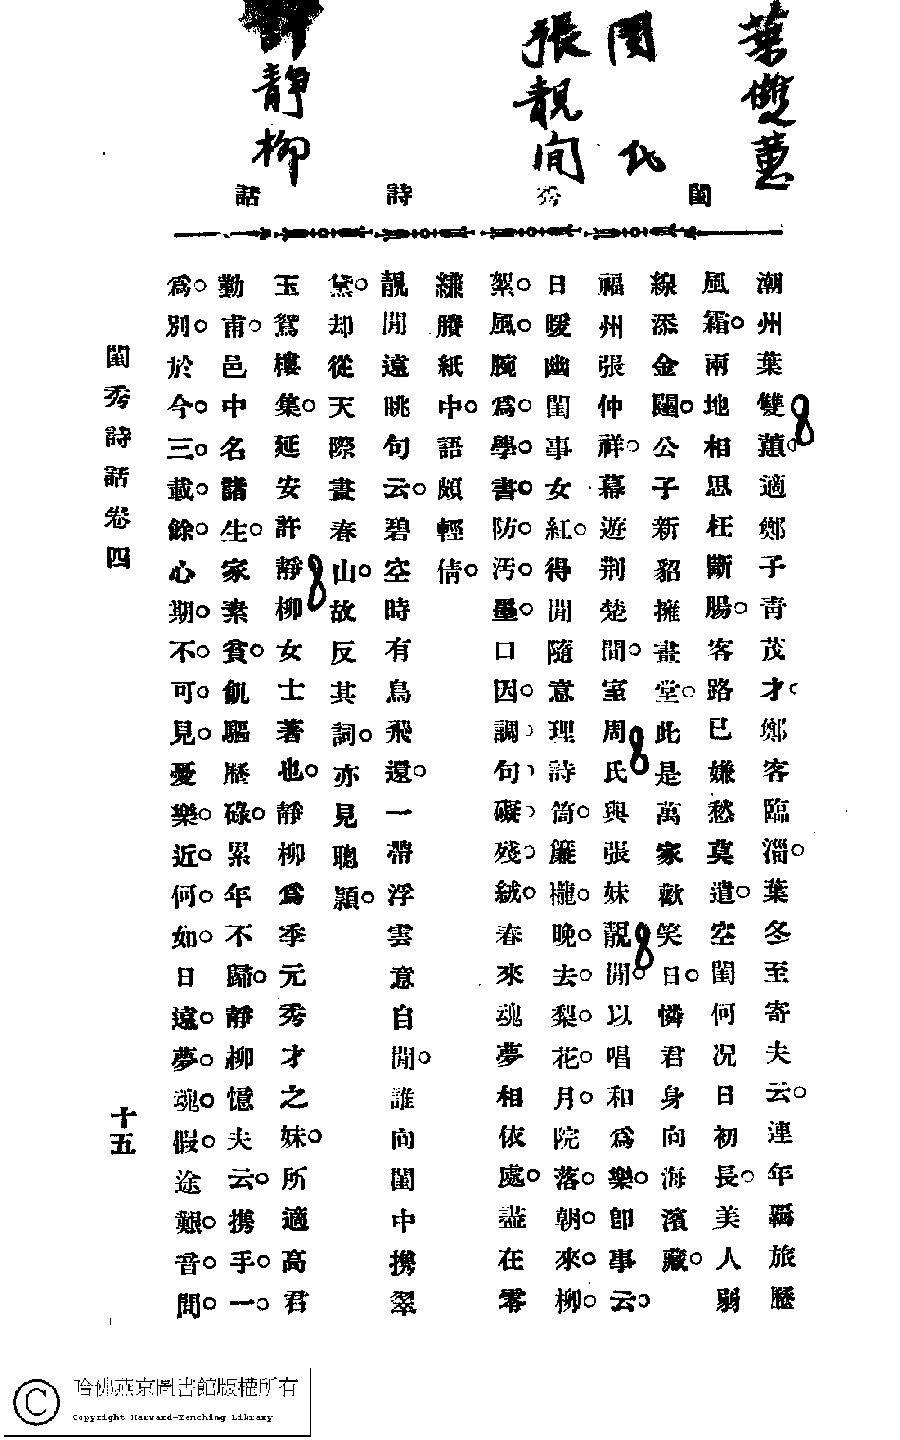 葉雙蕙
周氏
張靚閒
許靜柳
閨秀詩話
潮州葉雙蕙。適鄭子青茂才。鄭客臨淄。葉冬至寄夫云。連年羈旅歷
風霜。兩地相思枉斷腸。客路已嫌愁莫遣。空閨何况日初長。美人弱
線添金閨。公子新貂擁畫堂。此是萬家歡笑日。憐君身向海濱藏。
福州張仲祥。幕遊荆楚間。室周氏與張妹靚閒。以唱和爲樂。卽事云。
日暖幽閨事女紅。得閒隨意理詩筒。簾櫳晚去。梨花月。院落朝來。柳
絮。風。腕爲。學。書。防。汚。墨。口因。調。句。礙。殘。絨。春來魂夢相依處。謎在零
縑賸紙中。語頗輕倩。
靚閒遠眺句云。碧空時有鳥飛還。一帶浮雲意自閒。誰向閨中携翠
黛。却從天際畫春山。故反其詞。亦見聰頴。
玉鴛樓集。延安許靜柳女士著也。靜柳爲季元秀才之妹。所適高君
勤甫。邑中名諸生。家素貧。飢驅歷碌。累年不歸。靜柳憶夫云。携手。一。
爲。別。於今。三。載。餘。心期。不。可。見。憂樂。近。何如。日遠。夢。魂。假。途艱。音。聞。
閨秀詩話卷四
十五
哈佛燕京圖書館版權所有
Copyright Harvard-Yenching Library